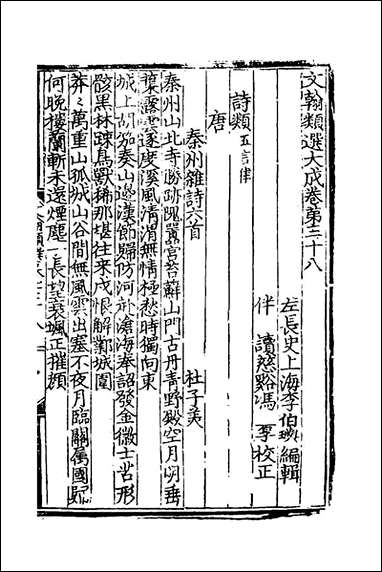 文翰類選大成卷第三十八
左長史上海李伯璵編輯
伴讀慈谿馮厚校正
詩類五言律
唐
秦州雜詩六首
杜子美
秦州山北寺勝跡隗嚻宮苔蘚山門古丹青野殿空月明垂
葉露雲逐度溪風清渭無情極愁時獨向東
城上胡笳奏山邊漢節歸防河赴滄海奉詔發金微士苦形
骸黑林疎鳥獸稀那堪往來戍恨解鄴城圍
莽〻萬重山孤城山谷間無風雲出塞不夜月臨關屬國歸
何晚樓蘭斬未還煙塵一長望衰颯正摧顔